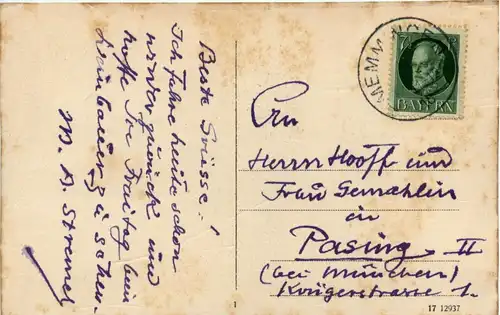 Beste Grüsse!
Ich fahre heute schon
wieder zurück und
hoffe Sie Freitag beim
Leinbauer zu sehen.
M. A. Stremel
MEMMINGEN
7½
BAYERN
An
Herrn Hooff und
Frau Gemahlin
in
Pasing II
(bei München)
Krügerstrasse 1.
1
17 12937